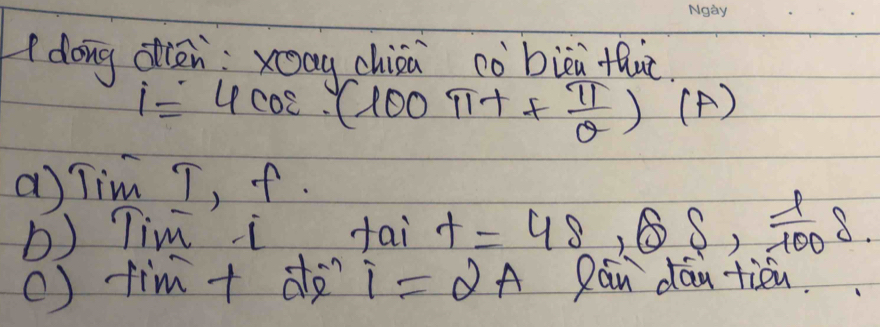 Ngày
1 dòng điện: xoay chiều có biểu thức.
i = 4 cos.(100πt + π/2) (A)
a) Tìm T, f.
b) Tìm i tại t = 4s, 8s, 1/100 s.
c) tìm t để i = 2A lần đầu tiên.